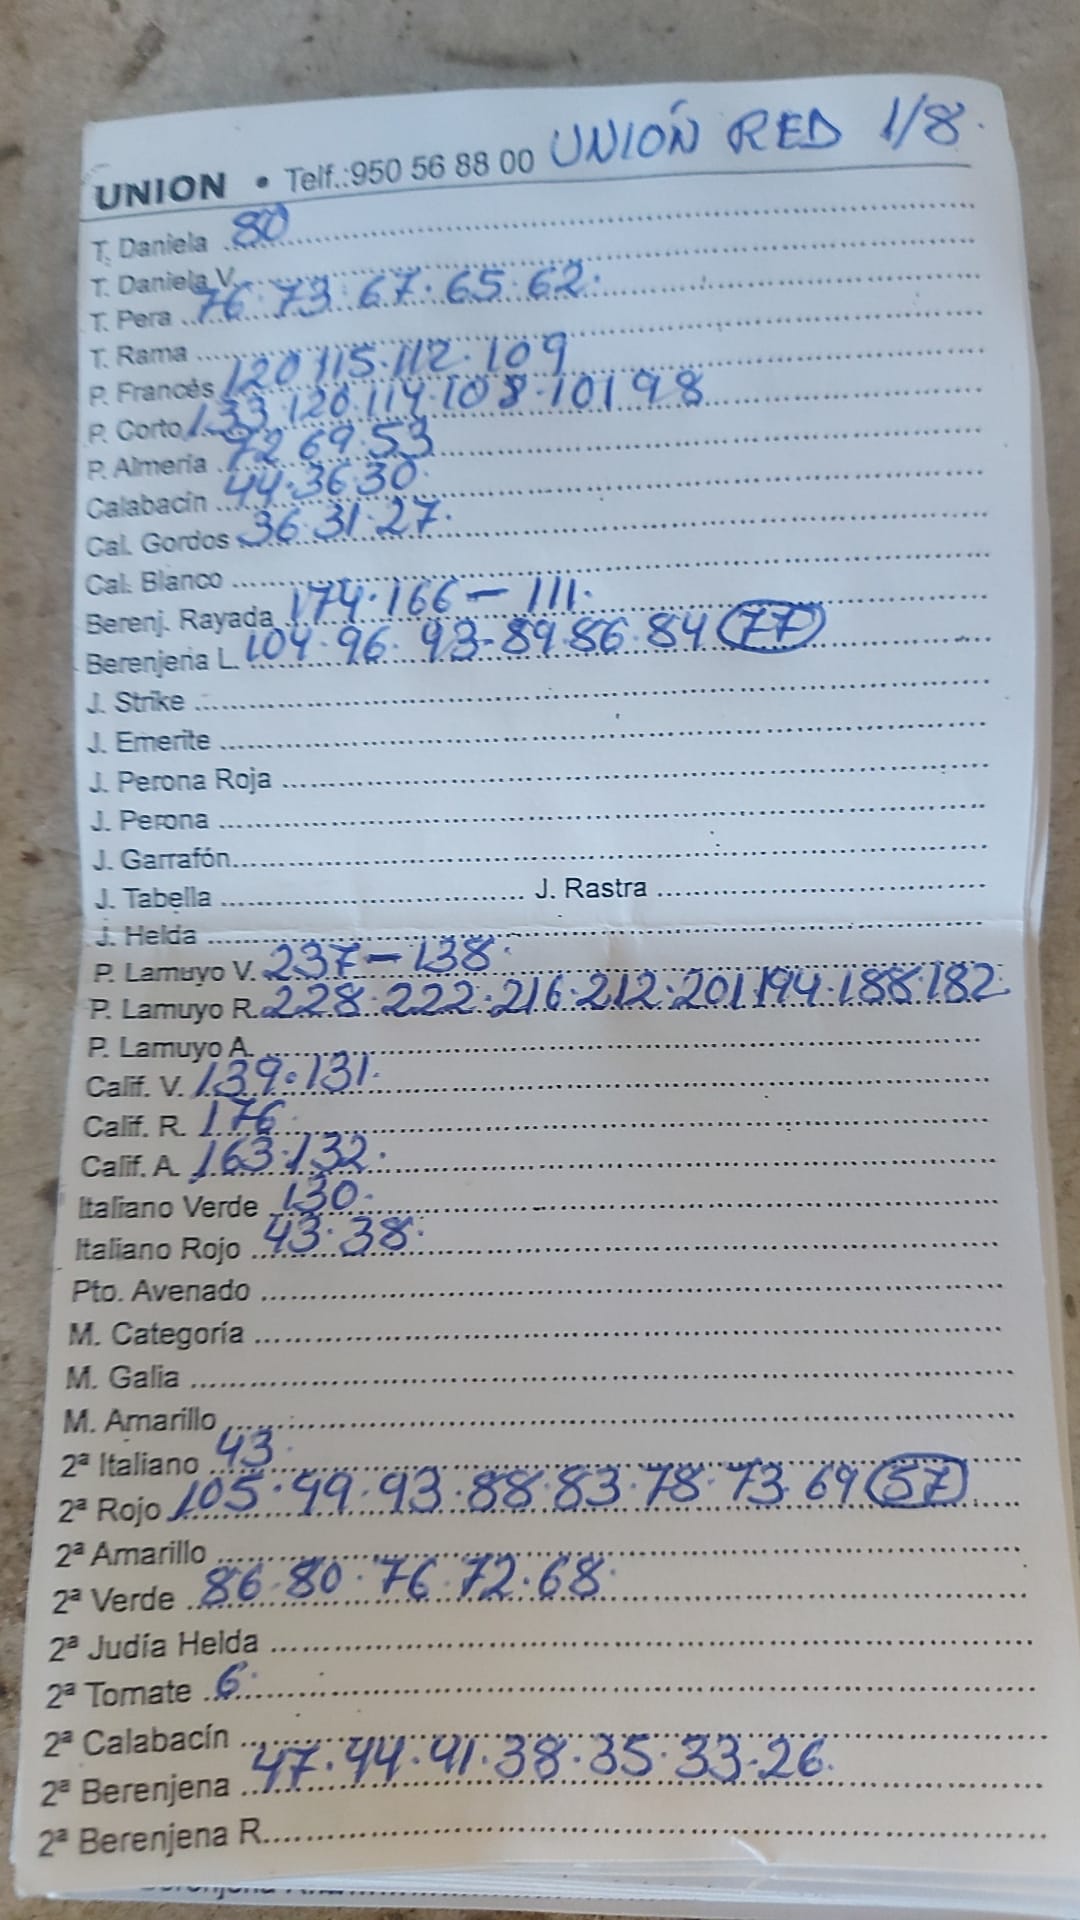 UNION • Telf.:950 56 88 00 UNIÓN RED 1/8.
T. Daniela 80
T. Daniela V.
T. Pera 76·73·67·65·62·
T. Rama
P. Francés 120 115·112·109
P. Corto 133·120·114·108·101 98
P. Almería 72 69·53
Calabacín 44·36·30·
Cal. Gordos 36·31·27·
Cal. Blanco
Berenj. Rayada 174·166 – 111·
Berenjena L. 104·96·93-89·86·84 77
J. Strike
J. Emerite
J. Perona Roja
J. Perona
J. Garrafón
J. Tabella J. Rastra
J. Helda
P. Lamuyo V. 237 – 138·
P. Lamuyo R. 228·222·216·212·201 194·188·182
P. Lamuyo A.
Calif. V. 139·131·
Calif. R. 176·
Calif. A. 163·132·
Italiano Verde 130·
Italiano Rojo 43·38·
Pto. Avenado
M. Categoría
M. Galia
M. Amarillo
2ª Italiano 43·
2ª Rojo 105·99·93·88·83·78·73·69 57
2ª Amarillo
2ª Verde 86·80·76·72·68·
2ª Judía Helda
2ª Tomate 6·
2ª Calabacín
2ª Berenjena 47·44·41·38·35·33·26·
2ª Berenjena R.